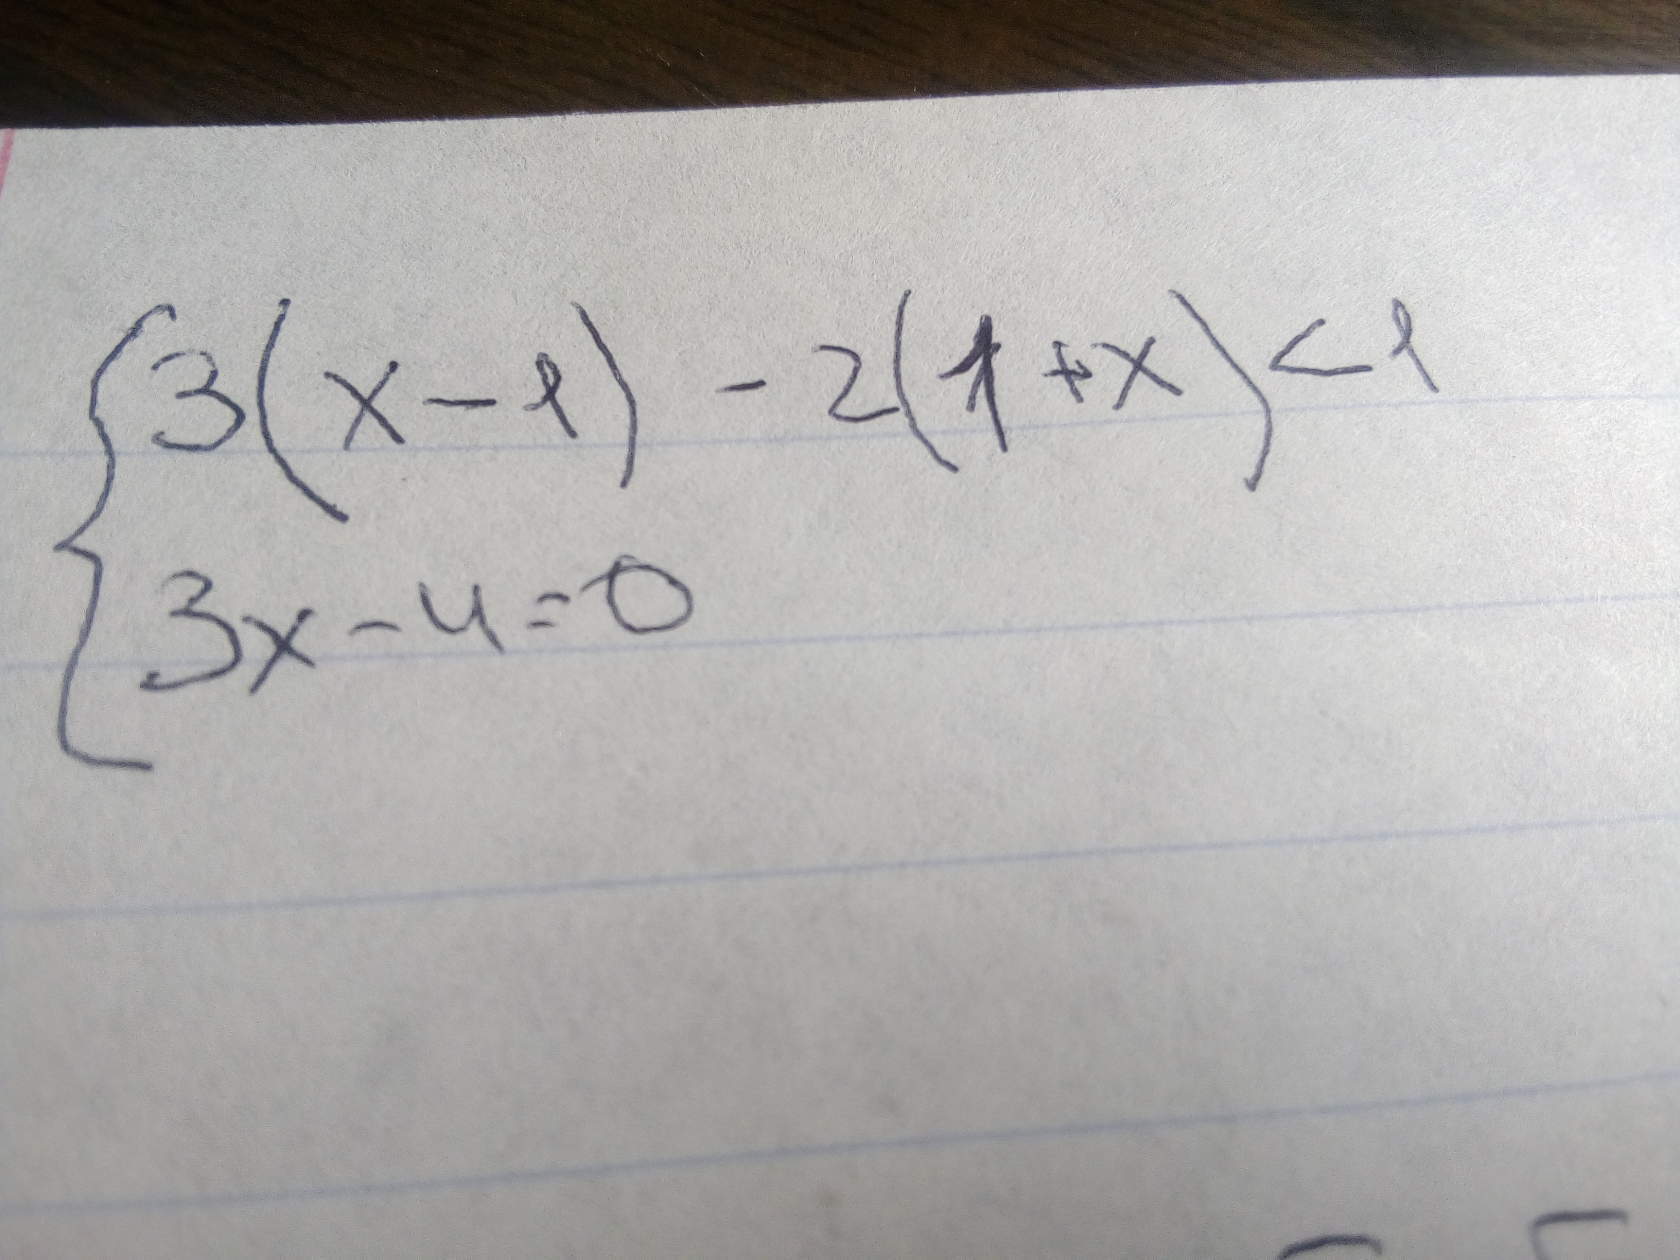 3(x-1) - 2(1+x)<1
3x-4=0